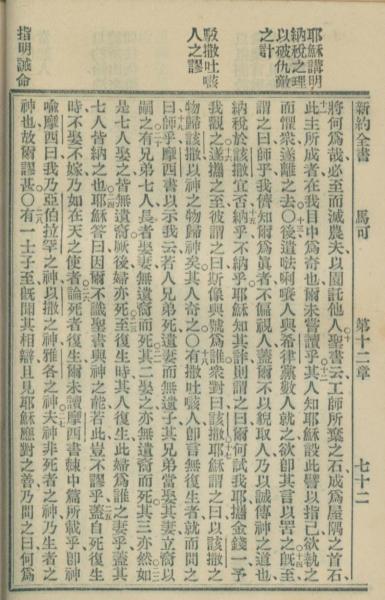 新約全書 馬可 第十二章 七十二
耶穌講明
納稅之理
以破仇敵
之計
駁撒吐咳
人之謬
指明誡命
將何為哉必至而滅農夫以園託他人聖書云工師所棄之石成為屋隅之首石
此主所成者在我目中為奇也爾未嘗讀乎其人知耶穌設此譬以指己欲執之
而懼衆遂離之去〇後遣唎人與希律黨數人就之欲即其言以罟之既至
謂之曰師乎我儕知爾為眞者不偏視人蓋爾不以貌取人乃以誠傳神之道也
納稅於該撒宜否納乎不納乎耶穌知其詐則謂之曰爾何試我耶攜金錢一予
我觀之遂攜之至彼謂之曰斯像與號為誰衆對曰該撒耶穌謂之曰以該撒之
物歸該撒以神之物歸神矣其人奇之〇有撒吐咳人即言無復生者就而問之
曰師乎摩西書以示我云若人兄弟死遺妻而無遺子其兄弟當娶其妻立裔以
嗣之有兄弟七人長者娶妻無遺裔而死其二娶之亦無遺裔而死其三亦然如
是七人娶之皆無遺裔厥後婦亦死至復生時其人復生此婦為誰之妻乎蓋其
七人皆納之也耶穌答曰因爾不識聖書與神之能若此豈不謬乎蓋自死復生
時不娶不嫁乃如在天之使者論死者復生爾未讀摩西書棘中篇所載乎即神
喻摩西曰我乃亞伯拉罕之神以撒之神雅各之神夫神非死者之神乃生者之
神也故爾謬甚〇有一士子至既聞其相辯且見耶穌應對之善乃問之曰何為